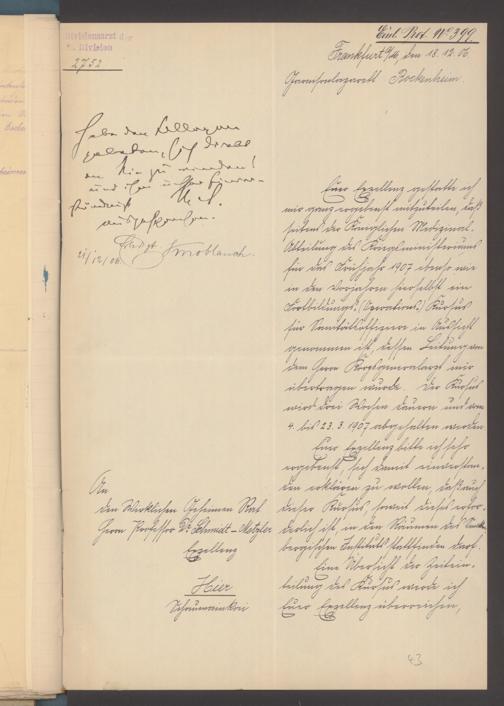 Divisionsarzt der
21. Division
2752
Einl. Prot. No 399
Frankfurt a/M, den 18.12.06.
Garnisonlazarett Bockenheim.
Habe den Kollegen
gebeten, sich direkt
an Sie zu wenden!
und ihm unser Einver-
ständnis
ausgesprochen.
21/12/06 Knoblauch.
Euer Exzellenz gestatte ich
mir ganz ergebenst mitzuteilen, daß
seitens der Königlichen Medizinal-
Abteilung des Kriegsministeriums
für das Frühjahr 1907 ebenso wie
in den Vorjahren hierselbst ein
Fortbildungs-(Operations) Kursus
für Sanitätsoffiziere in Aussicht
genommen ist, dessen Leitung von
dem Herrn Korpsgeneralarzt mir
übertragen wurde. Der Kursus
wird drei Wochen dauern und vom
4. bis 23.3.1907 abgehalten werden.
Euer Exzellenz bitte ich sehr
ergebenst, sich damit einverstan-
den erklären zu wollen, daß auch
dieser Kursus, soweit dieses erfor-
derlich ist, in den Räumen des Sencken-
bergischen Instituts stattfinden darf.
Eine Übersicht der Zeitein-
teilung des Kursus werde ich
Euer Exzellenz überreichen,
An
den Wirklichen Geheimen Rat
Herrn Professor Dr. Schmidt-Metzler
Exzellenz
Hier
43